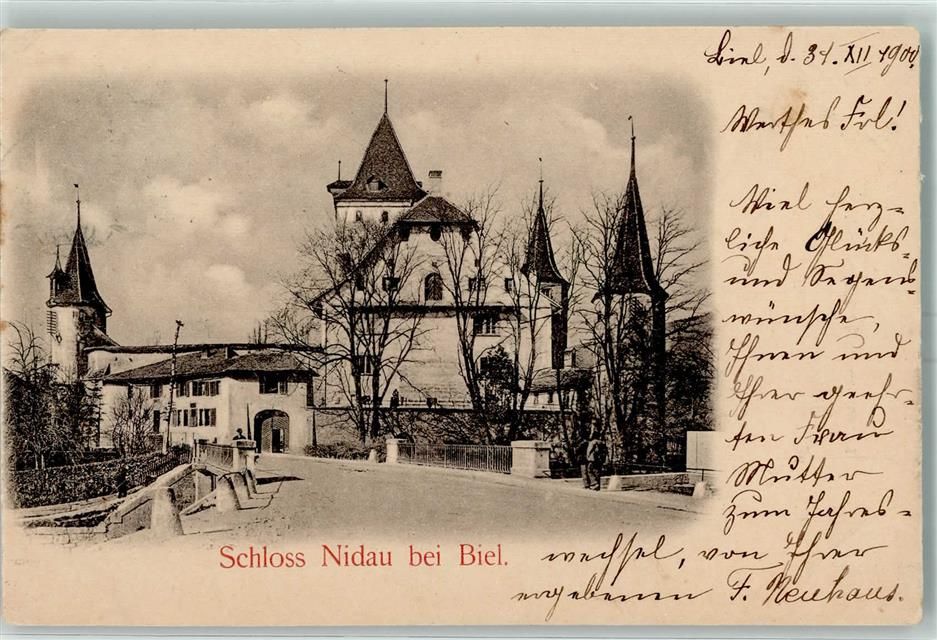 Biel, d. 31. XII 1900.
Werthes Frl!
Viel herz-
liche Glücks-
und Segens-
wünsche,
Ihnen und
Ihrer geehr-
ten Frau
Mutter
zum Jahres-
wechsel, von Ihrer
ergebenen F. Neuhaus.
Schloss Nidau bei Biel.